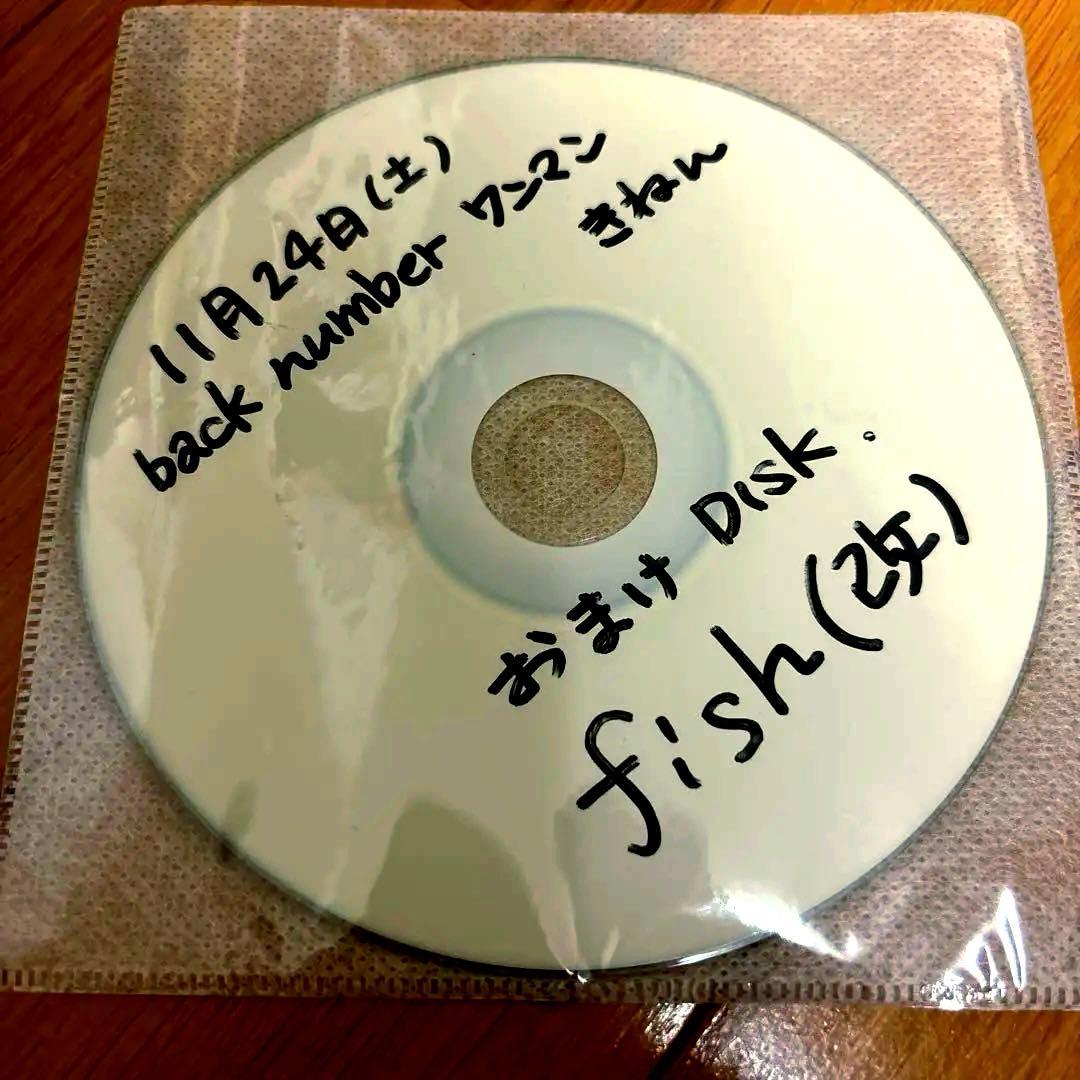 11月24日(土)
back number ワンマン
きねん
おまけ Disk.
fish(改)